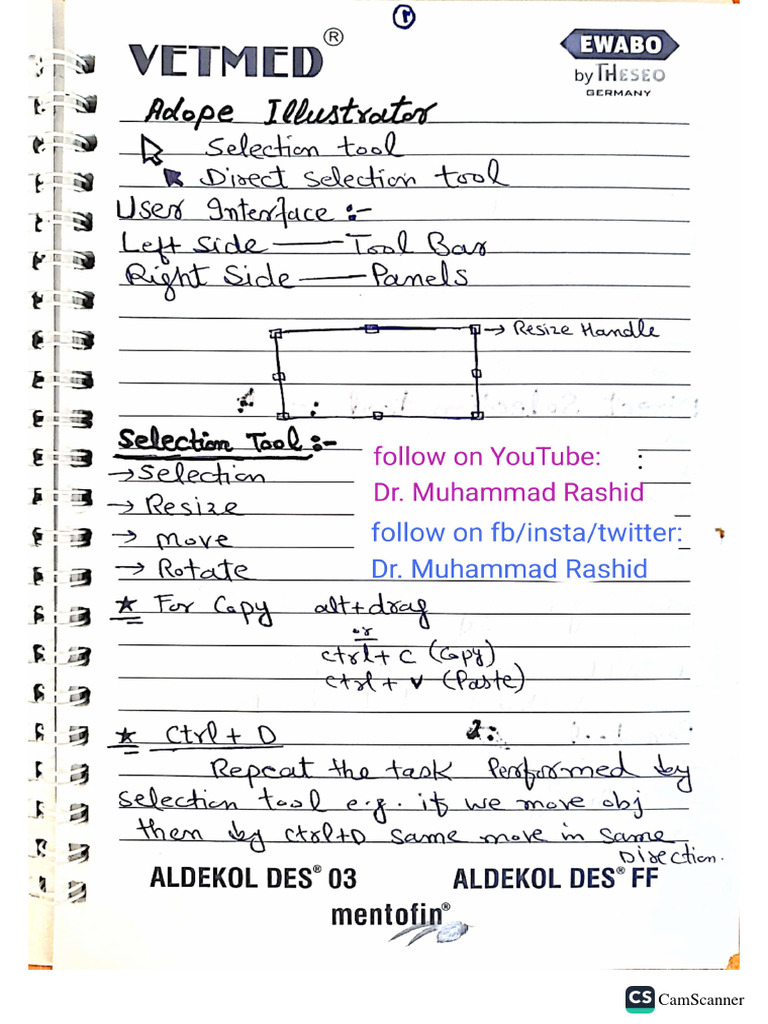 (۲)
VETMED®
EWABO
by THESEO
GERMANY
Adope Illustrator
Selection tool
Direct selection tool
User Interface :-
Left Side — Tool Bar
Right Side — Panels
→ Resize Handle
Selection Tool :-
→ Selection
→ Resize
→ Move
→ Rotate
follow on YouTube:
Dr. Muhammad Rashid
follow on fb/insta/twitter:
Dr. Muhammad Rashid
★ For Copy alt+drag
or
ctrl + C (Copy)
ctrl + V (Paste)
★ Ctrl + D
Repeat the task Performed by
selection tool e.g. if we move obj
then by ctrl+D same move in same
Direction.
ALDEKOL DES® 03 ALDEKOL DES® FF
mentofin®
CS CamScanner